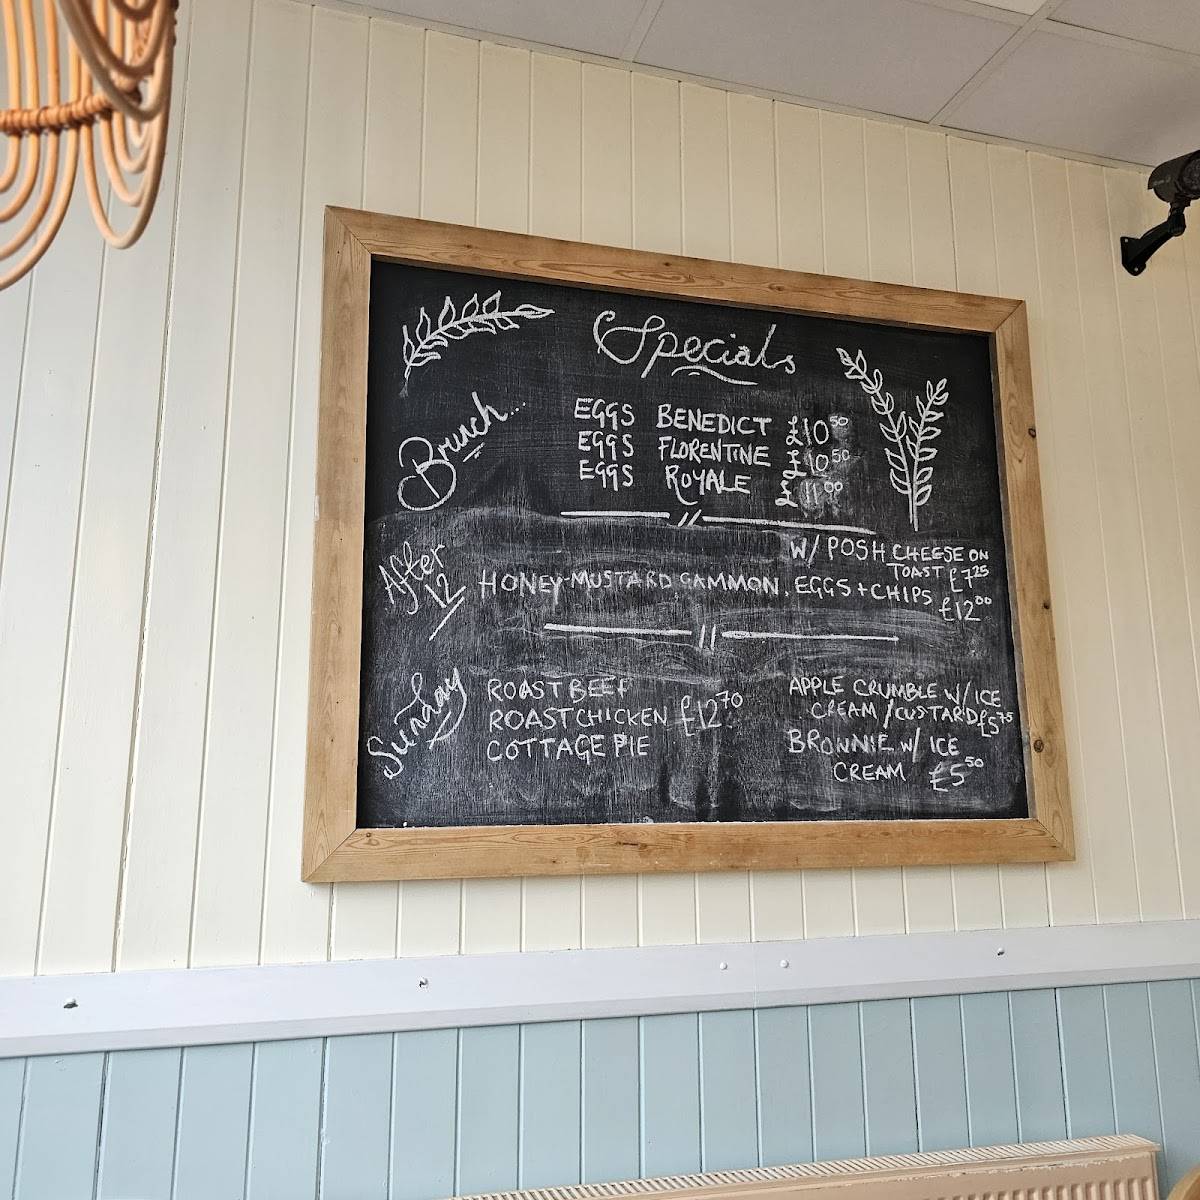 Specials
Brunch...
EGGS BENEDICT £10.50
EGGS FLORENTINE £10.50
EGGS ROYALE £11.00
After
12
W/ POSH CHEESE ON
TOAST £7.25
HONEY-MUSTARD GAMMON, EGGS + CHIPS £12.00
Sunday
ROAST BEEF
ROAST CHICKEN £12.70
COTTAGE PIE
APPLE CRUMBLE W/ ICE
CREAM / CUSTARD £5.75
BROWNIE W/ ICE
CREAM £5.50